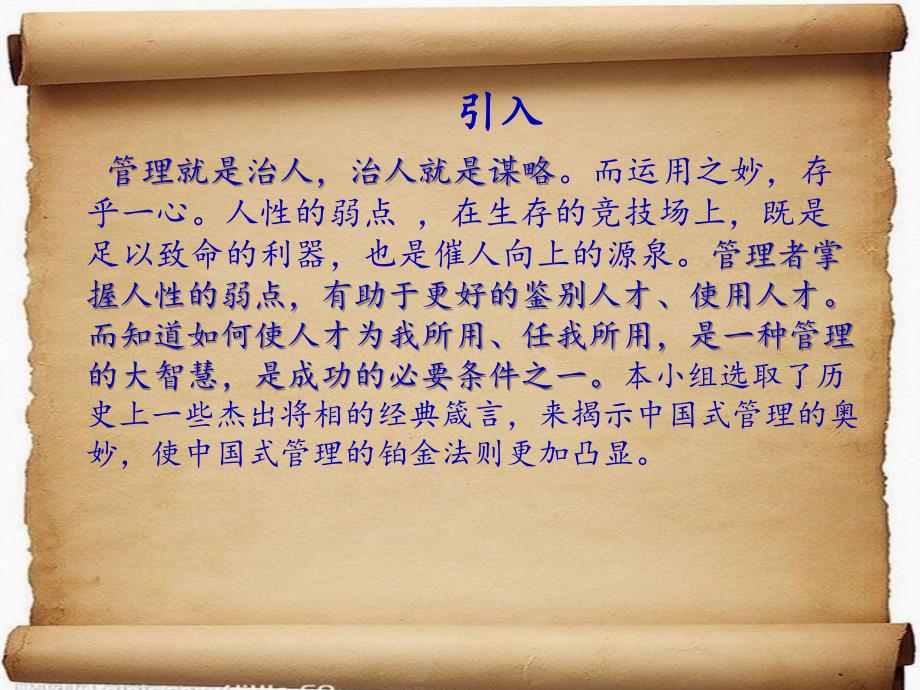 引入
管理就是治人，治人就是谋略。而运用之妙，存
乎一心。人性的弱点 ，在生存的竞技场上，既是
足以致命的利器，也是催人向上的源泉。管理者掌
握人性的弱点，有助于更好的鉴别人才、使用人才。
而知道如何使人才为我所用、任我所用，是一种管理
的大智慧，是成功的必要条件之一。本小组选取了历
史上一些杰出将相的经典箴言，来揭示中国式管理的奥
妙，使中国式管理的铂金法则更加凸显。